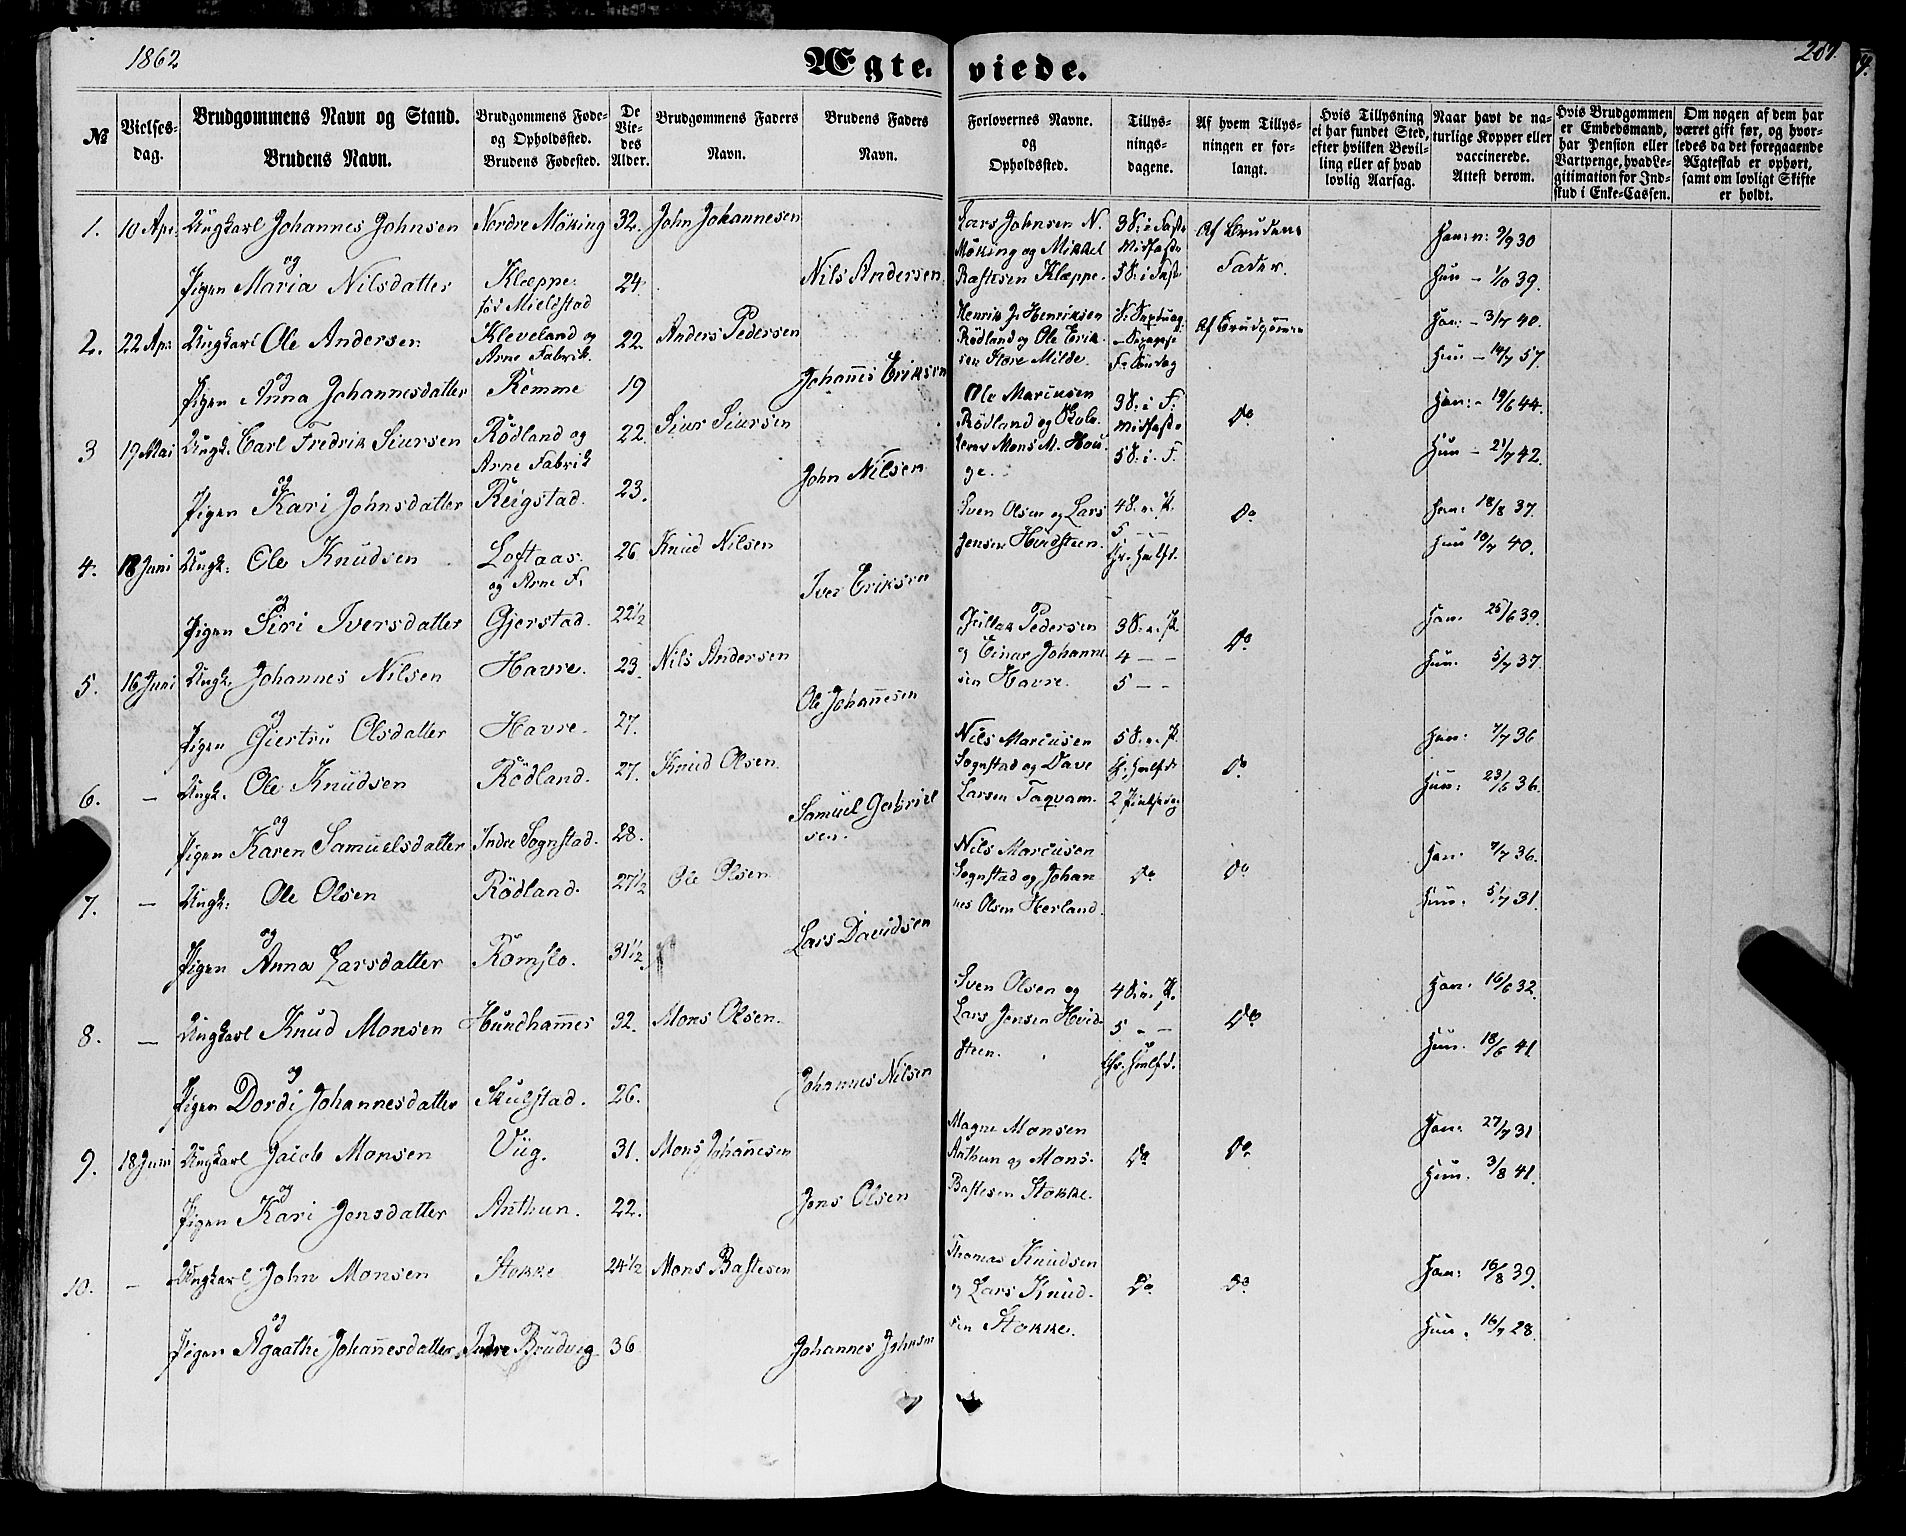 1862
Ægte-viede.
207.
№
Vielses-dag.
Brudgommens Navn og Stand.
Brudens Navn.
Brudgommens Føde- og Opholdssted.
Brudens Fødested.
De Vie-des Alder.
Brudgommens Faders Navn.
Brudens Faders Navn.
Forlovernes Navne. og Opholdssted.
Tillys-nings-dagene.
Af hvem Tillys-ningen er for-langt.
Hvis Tillysning ei har fundet Sted, efter hvilken Bevil-ling eller af hvad lovlig Aarsag.
Naar havt de na-turlige Kopper eller vaccinerede. Attest derom.
Hvis Brudgommen er Embedsmand, har Pension eller Vartpenge, hvad Le-gitimation for Ind-skud i Enke-Cassen.
Om nogen af dem har været gift før, og hvor-ledes da det foregaaende Ægteskab er ophørt, samt om lovligt Skifte er holdt.
1. 10 Apr: Ungkarl Johannes Johnsen Nordre Möking 32. John Johannesen
Lars Johnsen N. Möking og Mikkel Bastesen Klæppe.
3 S: i Faste Midfaste 5 S: i Fast
Af Brudens Fader.
Han: n: 9/9 30
Hun - 1/10 39.
og
Pigen Maria Nilsdatter Klæppe. fød Mieldstad 24. Nils Andersen
2. 22 Apr: Ungkarl Ole Andersen Kleveland og Arne Fabrik. 22. Anders Pedersen
Henrik J. Henriksen Rödland og Ole Erik-sen Store Milde.
Af Brudgommen
Han: - 3/7 40.
Hun - 14/7 57.
og
Pigen Anna Johannesdatter Remme 19 Johannes Eriksen
3 19 Mai Ungk. Carl Fredrik Siursen Rödland og Arne Fabrik 22. Siur Siursen
Ole Marcusen Rödland og Mons M. Hou-ge.
3 S: i F: Midfaste 5 S: i. F.
Do
Han: - 19/6 44.
Hun - 21/7 42.
og
Pigen Kari Johnsdatter Reigstad. 23. John Nilsen
4. 18 Juni Ungk: Ole Knudsen Loftaas. og Arne F. 26 Knud Nilsen
Sven Olsen og Lars Jensen Hvidsteen.
4 S. e. P. 5 - -
Do
Han: 18/8 37.
Hun 10/7 40.
og
Pigen Siri Iversdatter Gjerstad. 22 1/2 Iver Eriksen
5. 16 Juni Ungk. Johannes Nilsen Havre. 23. Nils Andersen
Pedersen og Einar Johanne-sen Havre.
3 S. e. P. 4 - - 5 - -
Do
Han. 25/6 39.
Hun. 5/7 37.
og
Pigen Giertru Olsdatter Havre. 27. Ole Johannesen
6. - Ungk. Ole Knudsen Rödland. 27. Knud Olsen.
Nils Marcusen Sognstad og Dave Larsen Taqvam.
5 S. e. P. 2 Pintsedag
Do
Han: 7/7 36
Hun: 23/6 36.
og
Pigen Karen Samuelsdatter Indre Sognstad. 28. Samuel Gabriel-sen.
7. - Ungk: Ole Olsen Rödland. 27 1/2 Ole Olsen
Nils Marcusen Sognstad og Johan-nes Olsen Herland.
Do
Do
Han. 7/7 36.
Hun. 5/7 31.
og
Pigen Anna Larsdatter Romslo. 31 1/2 Lars Davidsen
8. - Ungkarl Knud Monsen Hundhammer 32. Mons Olsen.
Sven Olsen og Lars Jensen Hvid-steen.
4 S. e. P. 5 - -
Do
Han. 16/6 32.
Hun. 18/6 41
og
Pigen Dordi Johannesdatter Skulstad. 26. Johannes Nilsen
9. 18 Juni Ungkarl Jacob Monsen Viig. 31. Mons Johannesen
Magne Monsen Anthun og Mons Bastesen Stokke.
Do
Do
Han: 27/7 31
Hun. 3/8 41.
og
Pigen Kari Jensdatter Anthun. 22. Jens Olsen
10. - Ungkarl John Monsen Stokke 24 1/2 Mons Bastesen
Thomas Knudsen og Lars Knud-sen Stokke.
Do
Do
Han: 16/8 39.
Hun. 16/7 28.
og
Pigen Agaathe Johannesdatter Indre Brudvig 36 Johannes Johnsen